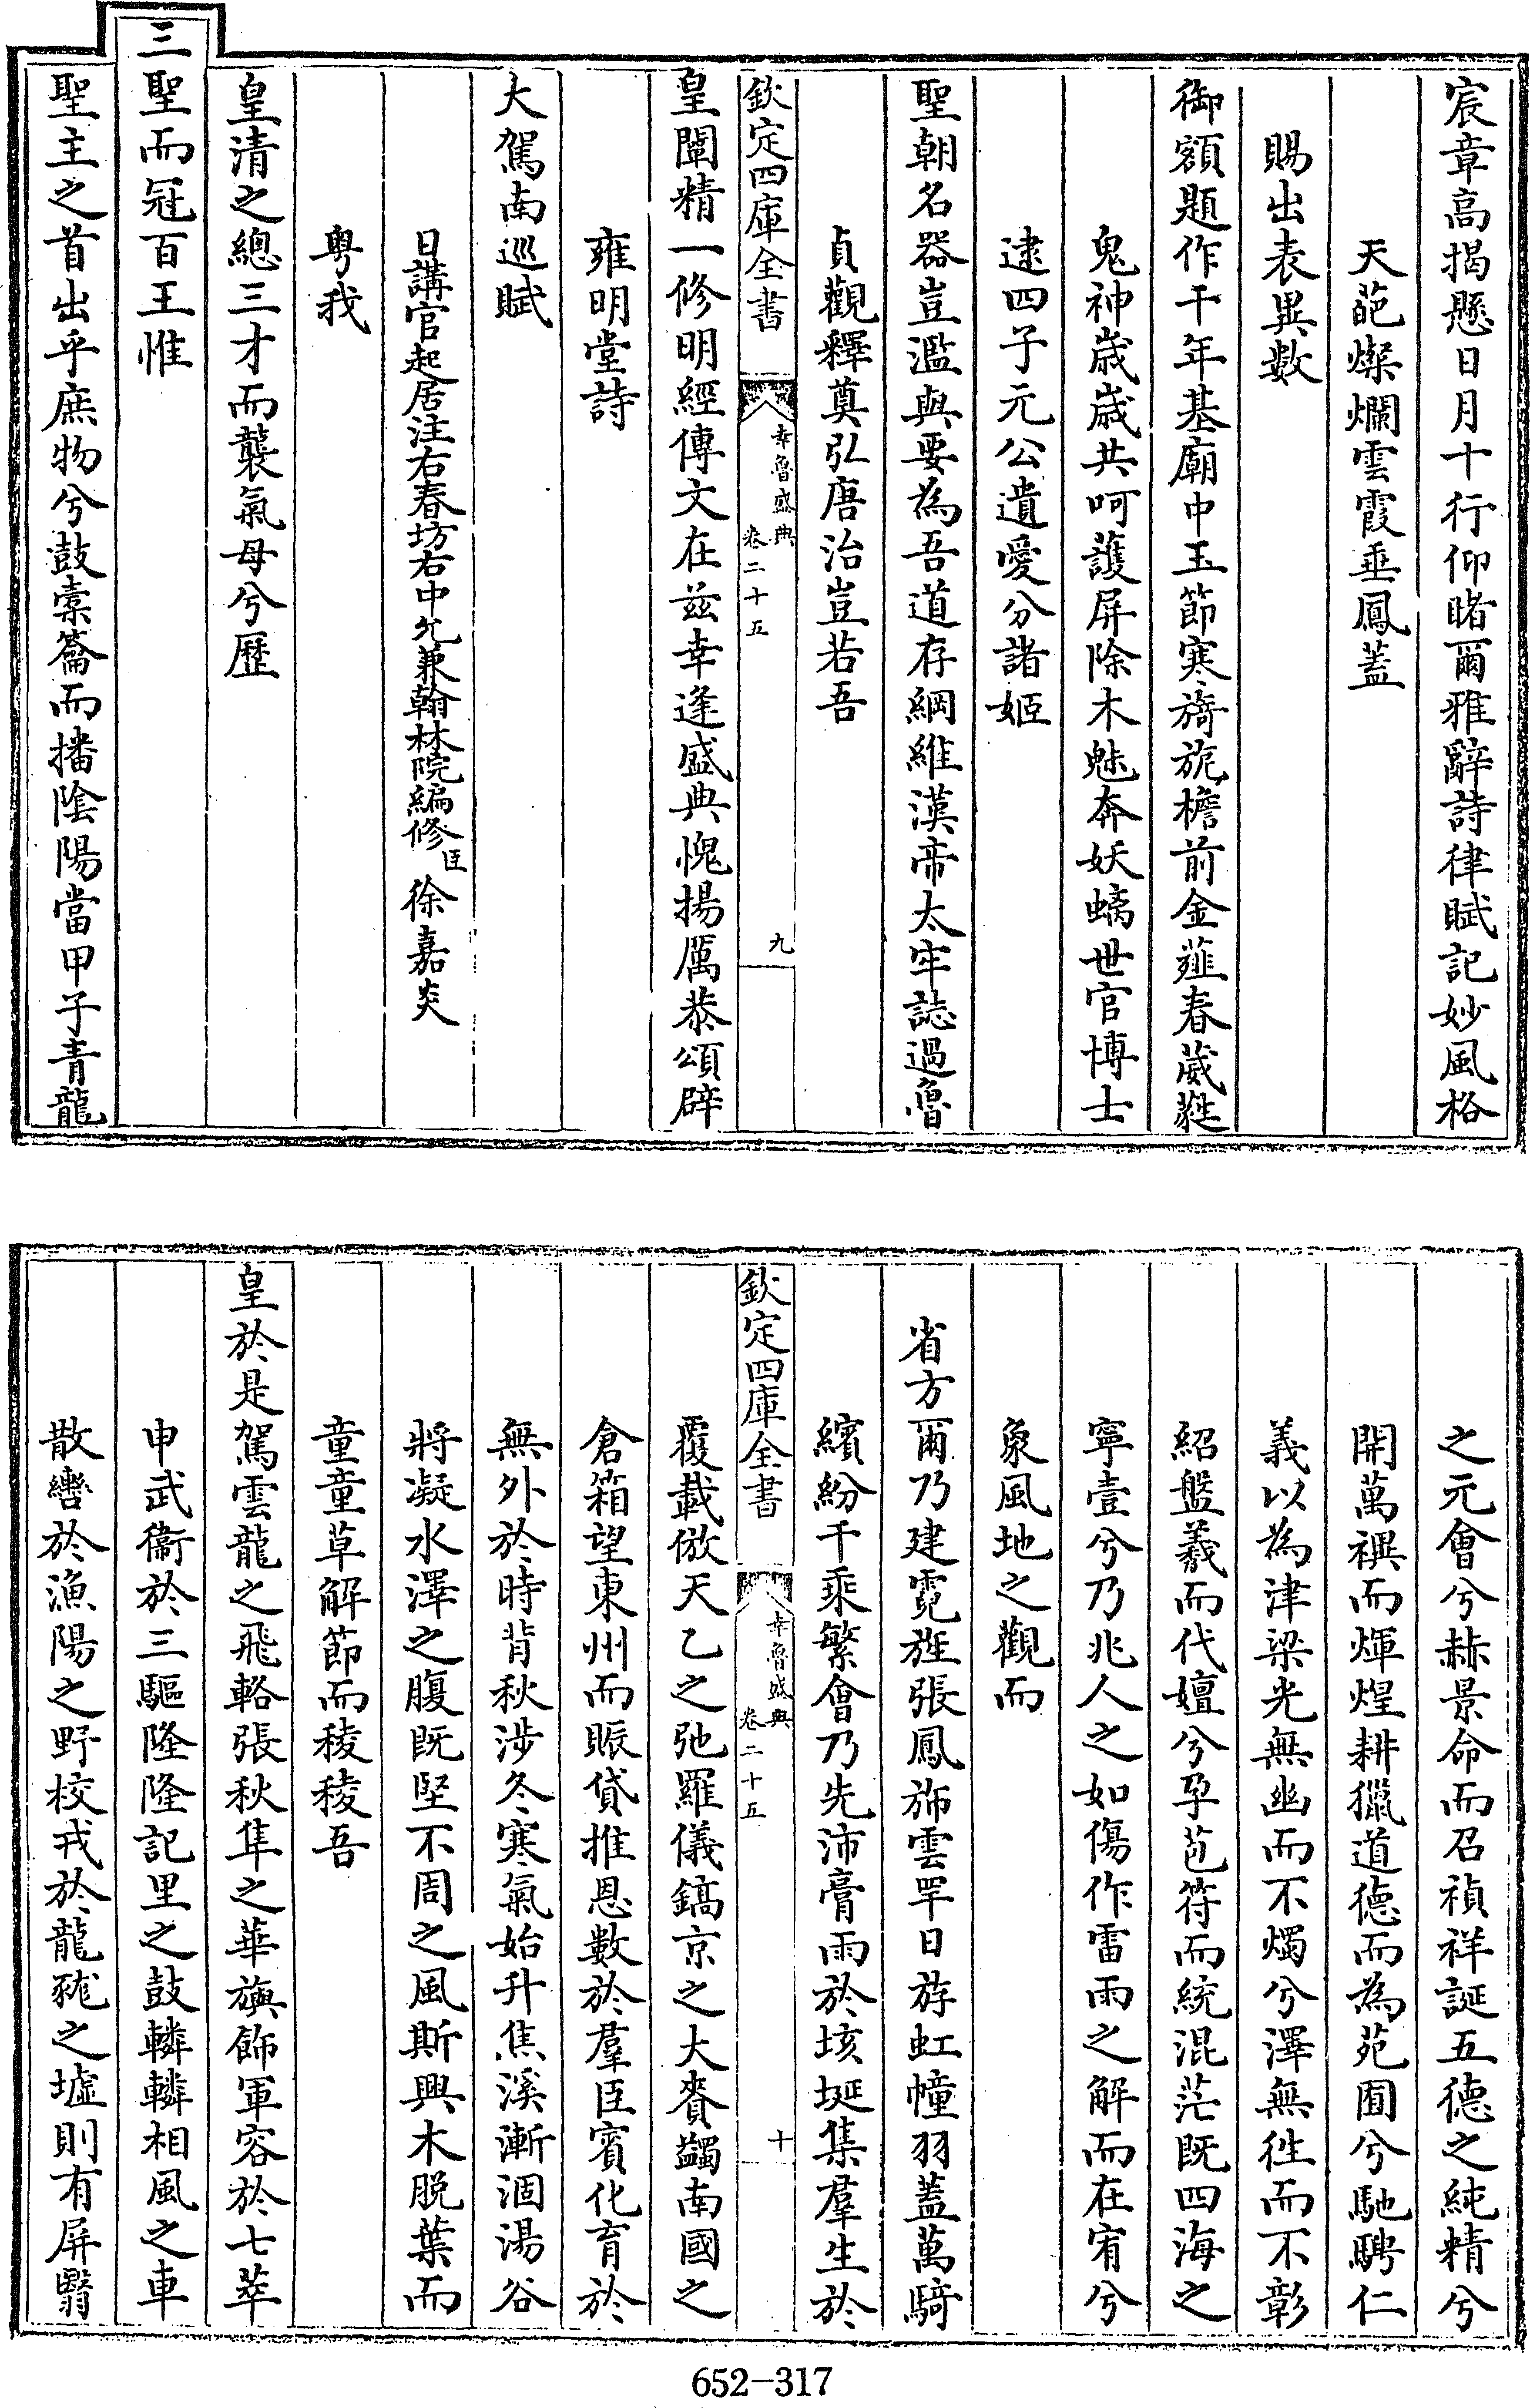 宸章高揭懸日月十行仰睹爾雅辭詩律賦記妙風格
天葩燦爛雲霞垂鳳蓋
賜出表異數
御額題作千年基廟中玉節寒旖旎檐前金薤春葳蕤
鬼神歲歲共呵護屏除木魅奔妖螭世官博士
逮四子元公遺愛分諸姬
聖朝名器豈濫與要為吾道存綱維漢帝太牢誌過魯
貞觀釋奠弘唐治豈若吾
欽定四庫全書 幸魯盛典 卷二十五 九
皇闡精一修明經傳文在兹幸逢盛典愧揚厲恭頌辟
雍明堂詩
大駕南巡賦
日講官起居注右春坊右中允兼翰林院編修臣徐嘉炎
粤我
皇清之總三才而襲氣母兮歷
三聖而冠百王惟
聖主之首出乎庶物兮鼓橐籥而播陰陽當甲子青龍
之元會兮赫景命而召禎祥誕五德之純精兮
開萬禩而煇煌耕獵道德而為苑囿兮馳騁仁
義以為津梁光無幽而不燭兮澤無徃而不彰
紹盤羲而代嬗兮孕苞符而統混茫既四海之
寧壹兮乃兆人之如傷作雷雨之解而在宥兮
象風地之觀而
省方爾乃建霓旌張鳳斾雲罕日斿虹幢羽蓋萬騎
繽紛千乘繁會乃先沛膏雨於垓埏集羣生於
欽定四庫全書 幸魯盛典 卷二十五 十
覆載倣天乙之弛羅儀鎬京之大賚蠲南國之
倉箱望東州而賑貸推恩數於羣臣賓化育於
無外於時背秋涉冬寒氣始升焦溪漸涸湯谷
將凝水澤之腹既堅不周之風斯興木脱葉而
童童草解節而稜稜吾
皇於是駕雲龍之飛輅張秋隼之華旟飾軍容於七萃
申武衞於三驅隆隆記里之鼓轔轔相風之車
散轡於漁陽之野校戎於龍𧱓之墟則有屏翳